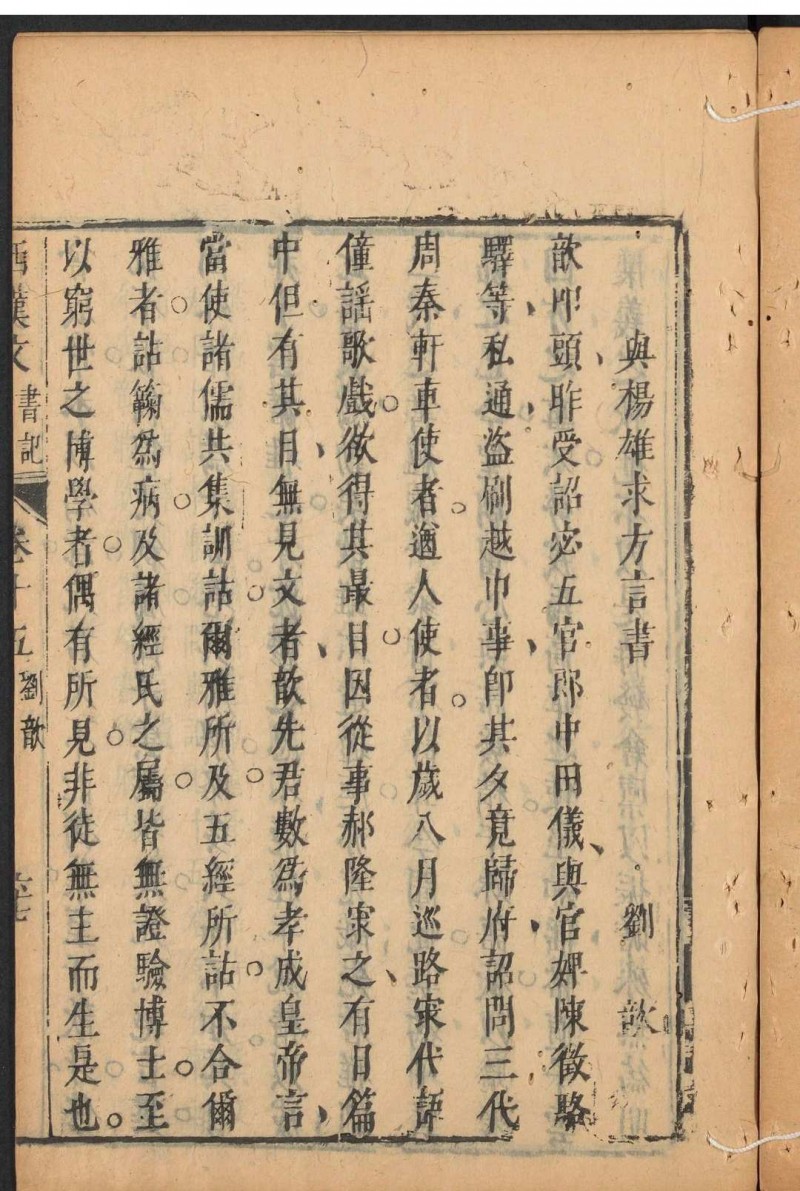 與楊雄求方言書 劉歆
歆叩頭昨受詔宓五官郎中田儀與官婢陳徵駱
驛等私通盜刷越巾事即其夕竟歸府詔問三代
周秦軒車使者遒人使者以歲八月巡路宷代語
僮謡歌戲欲得其最目因從事郝隆宷之有日篇
中但有其目無見文者歆先君數爲孝成皇帝言
當使諸儒共集訓詁爾雅所及五經所詁不合爾
雅者詁籟爲病及諸經氏之屬皆無證驗博士至
以窮世之博學者偶有所見非徒無主而生是也
西漢文 書記 卷十五 劉歆